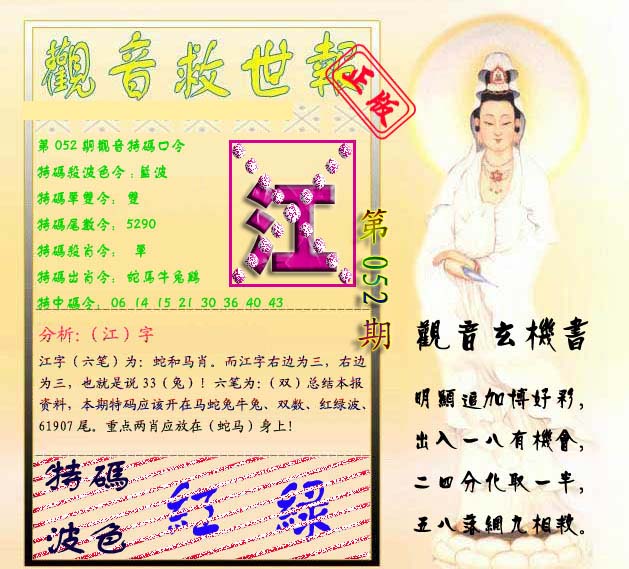 觀音救世報
正版
第 052 期觀音特碼口令
特碼殺波色令：藍波
特碼單雙令： 雙
特碼尾數令： 5290
特碼殺肖令： 單
特碼出肖令： 蛇馬牛兔鷄
特中碼令： 06 14 15 21 30 36 40 43
江
第 052 期
分析:（江）字
江字（六笔）为：蛇和马肖。而江字右边为三，右边
为三，也就是说 33（兔）！六笔为：（双）总结本报
资料，本期特码应该开在马蛇兔牛兔、双数、红绿波、
61907 尾。重点两肖应放在（蛇马）身上！
特碼
波色
紅 綠
觀音玄機書
明顯追加博好彩，
出入一八有機會，
二四分化取一半，
五八落網九相救。